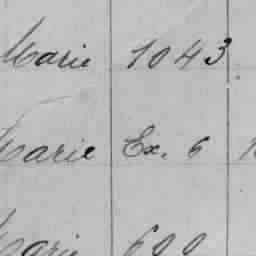 Marie 1043
Marie Ex. 6
Marie 600